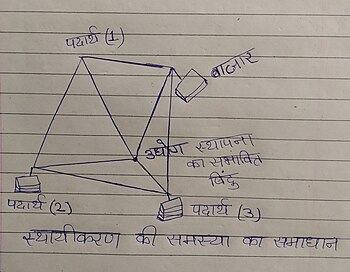 पदार्थ (1)
बाजार
उद्योग स्थापना
का सभावित
बिंदु
पदार्थ (2)
पदार्थ (3)
स्थायीकरण की समस्या का समाधान